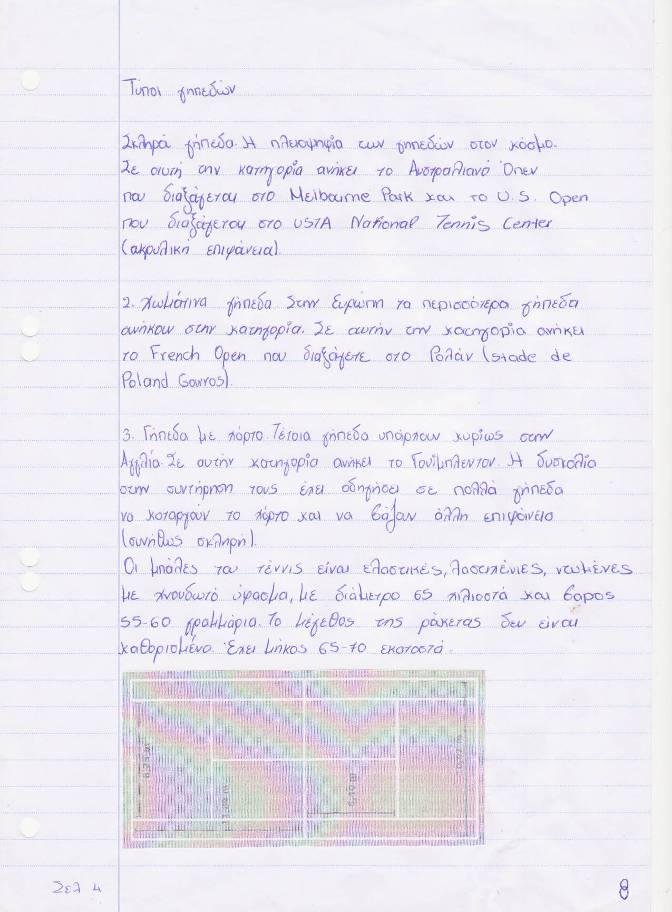 Τύποι γηπεδών
Σκληρά γήπεδα. Η πλειοψηφία των γηπεδών στον κόσμο.
Σε αυτή την κατηγορία ανήκει το Αυστραλιανό Όπεν
που διαξάγεται στο Melbourne Park και το U.S. Open
που διαξάγεται στο USTA National Tennis Center
(ακρυλική επιφάνεια).
2. Χωμάτινα γήπεδα. Στην Ευρώπη τα περισσότερα γήπεδα
ανήκουν στην κατηγορία. Σε αυτήν την κατηγορία ανήκει
το French Open που διαξάγετε στο Ρολάν (stade de
Roland Garros).
3. Γήπεδα με χόρτο. Τέτοια γήπεδα υπάρχουν κυρίως στην
Αγγλία. Σε αυτήν κατηγορία ανήκει το Γουίμπλεντον. Η δυσκολία
στην συντήρηση τους έχει οδηγήσει σε πολλά γήπεδα
να καταργούν το χόρτο και να βάζαν άλλη επιφάνεια
(συνήθως σκληρή).
Οι μπάλες του τέννις είναι ελαστικές, λαστιχένιες, ντυμένες
με χνουδωτό ύφασμα, με διάμετρο 65 χιλιοστά και βάρος
55-60 γραμμάρια. Το μέγεθος της ρακέτας δεν είναι
καθορισμένο. Έχει μήκος 65-70 εκατοστά.
Σελ 4
8